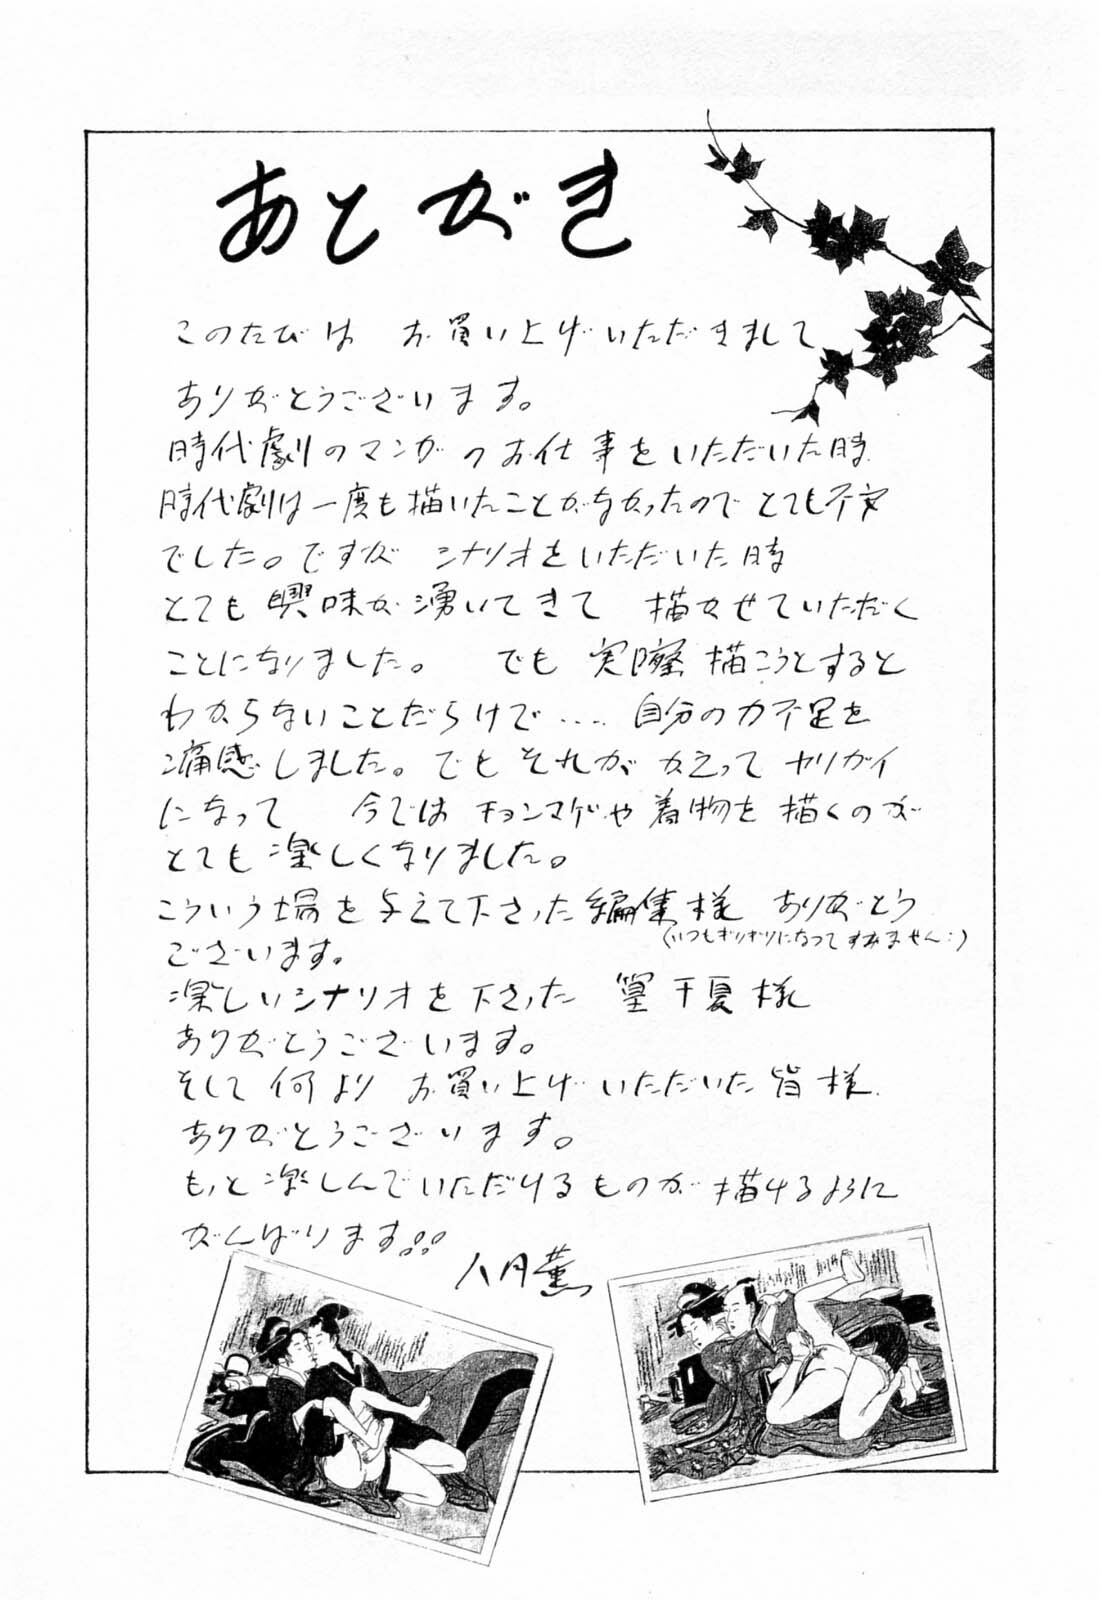 あとがき
このたびは お買い上げいただきまして
ありがとうございます。
時代劇のマンガのお仕事をいただいた時
時代劇は一度も描いたことがなかったのでとても不安
でした。ですが シナリオをいただいた時
とても興味が湧いてきて 描かせていただく
ことになりました。 でも 実際描こうとすると
わからないことだらけで‥‥ 自分の力不足を
痛感しました。でもそれが かえって ヤリガイ
になって 今では チョンマゲや着物を描くのが
とても楽しくなりました。
こういう場を与えて下さった編集様 ありがとう
ございます。
(いつもギリギリになってすみません:)
楽しいシナリオを下さった 篁千夏様
ありがとうございます。
そして何より お買い上げ いただいた皆様
ありがとうございます。
もっと楽しんでいただけるものが描けるように
がんばります!!
八月薫